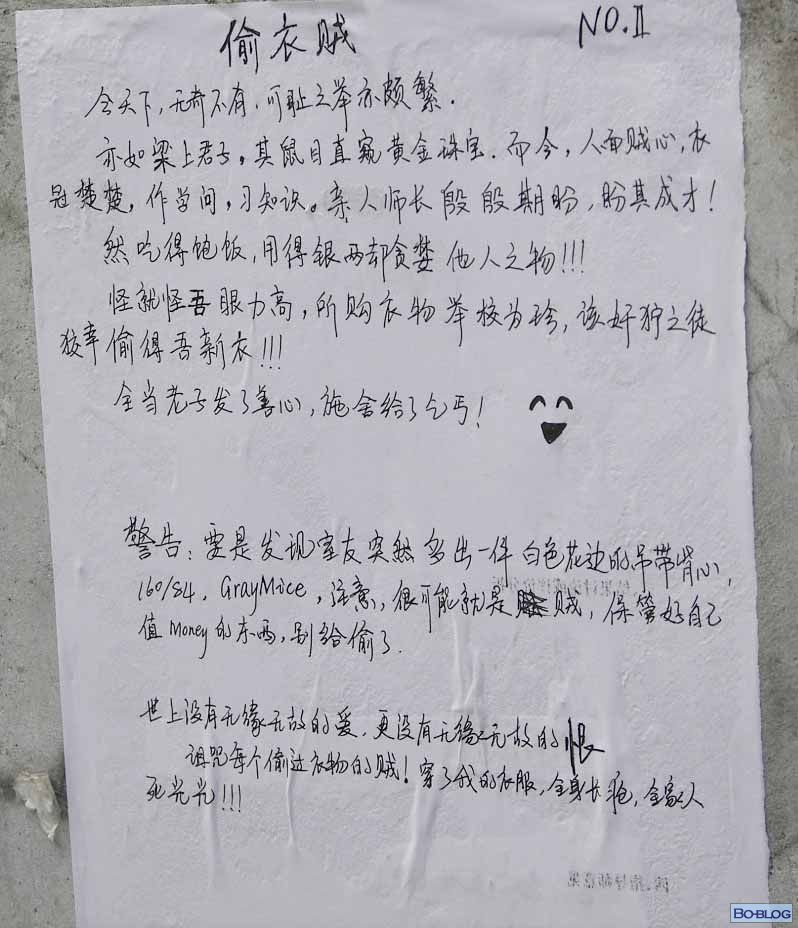 偷衣贼
NO.Ⅱ
今天下，无奇不有，可耻之举亦颇繁．
亦如梁上君子，其鼠目直窥黄金珠宝．而今，人面贼心，衣
冠楚楚，作学问，习知识。亲人师长殷殷期盼，盼其成才！
然吃得饱饭，用得银两却贪婪他人之物!!!
怪就怪吾眼力高，所购衣物举校为珍，该奸狞之徒
狡幸偷得吾新衣!!!
全当老子发了善心，施舍给了乞丐！
警告：要是发现室友突然多出一件白色花边的吊带背心，
160/84，GrayMice，注意，很可能就是贼，保管好自己
值Money的东西，别给偷了．
世上没有无缘无故的爱．更没有无缘无故的恨
诅咒每个偷过衣物的贼！穿了我的衣服，全身长疱，全家人
死光光!!!
BO-BLOG